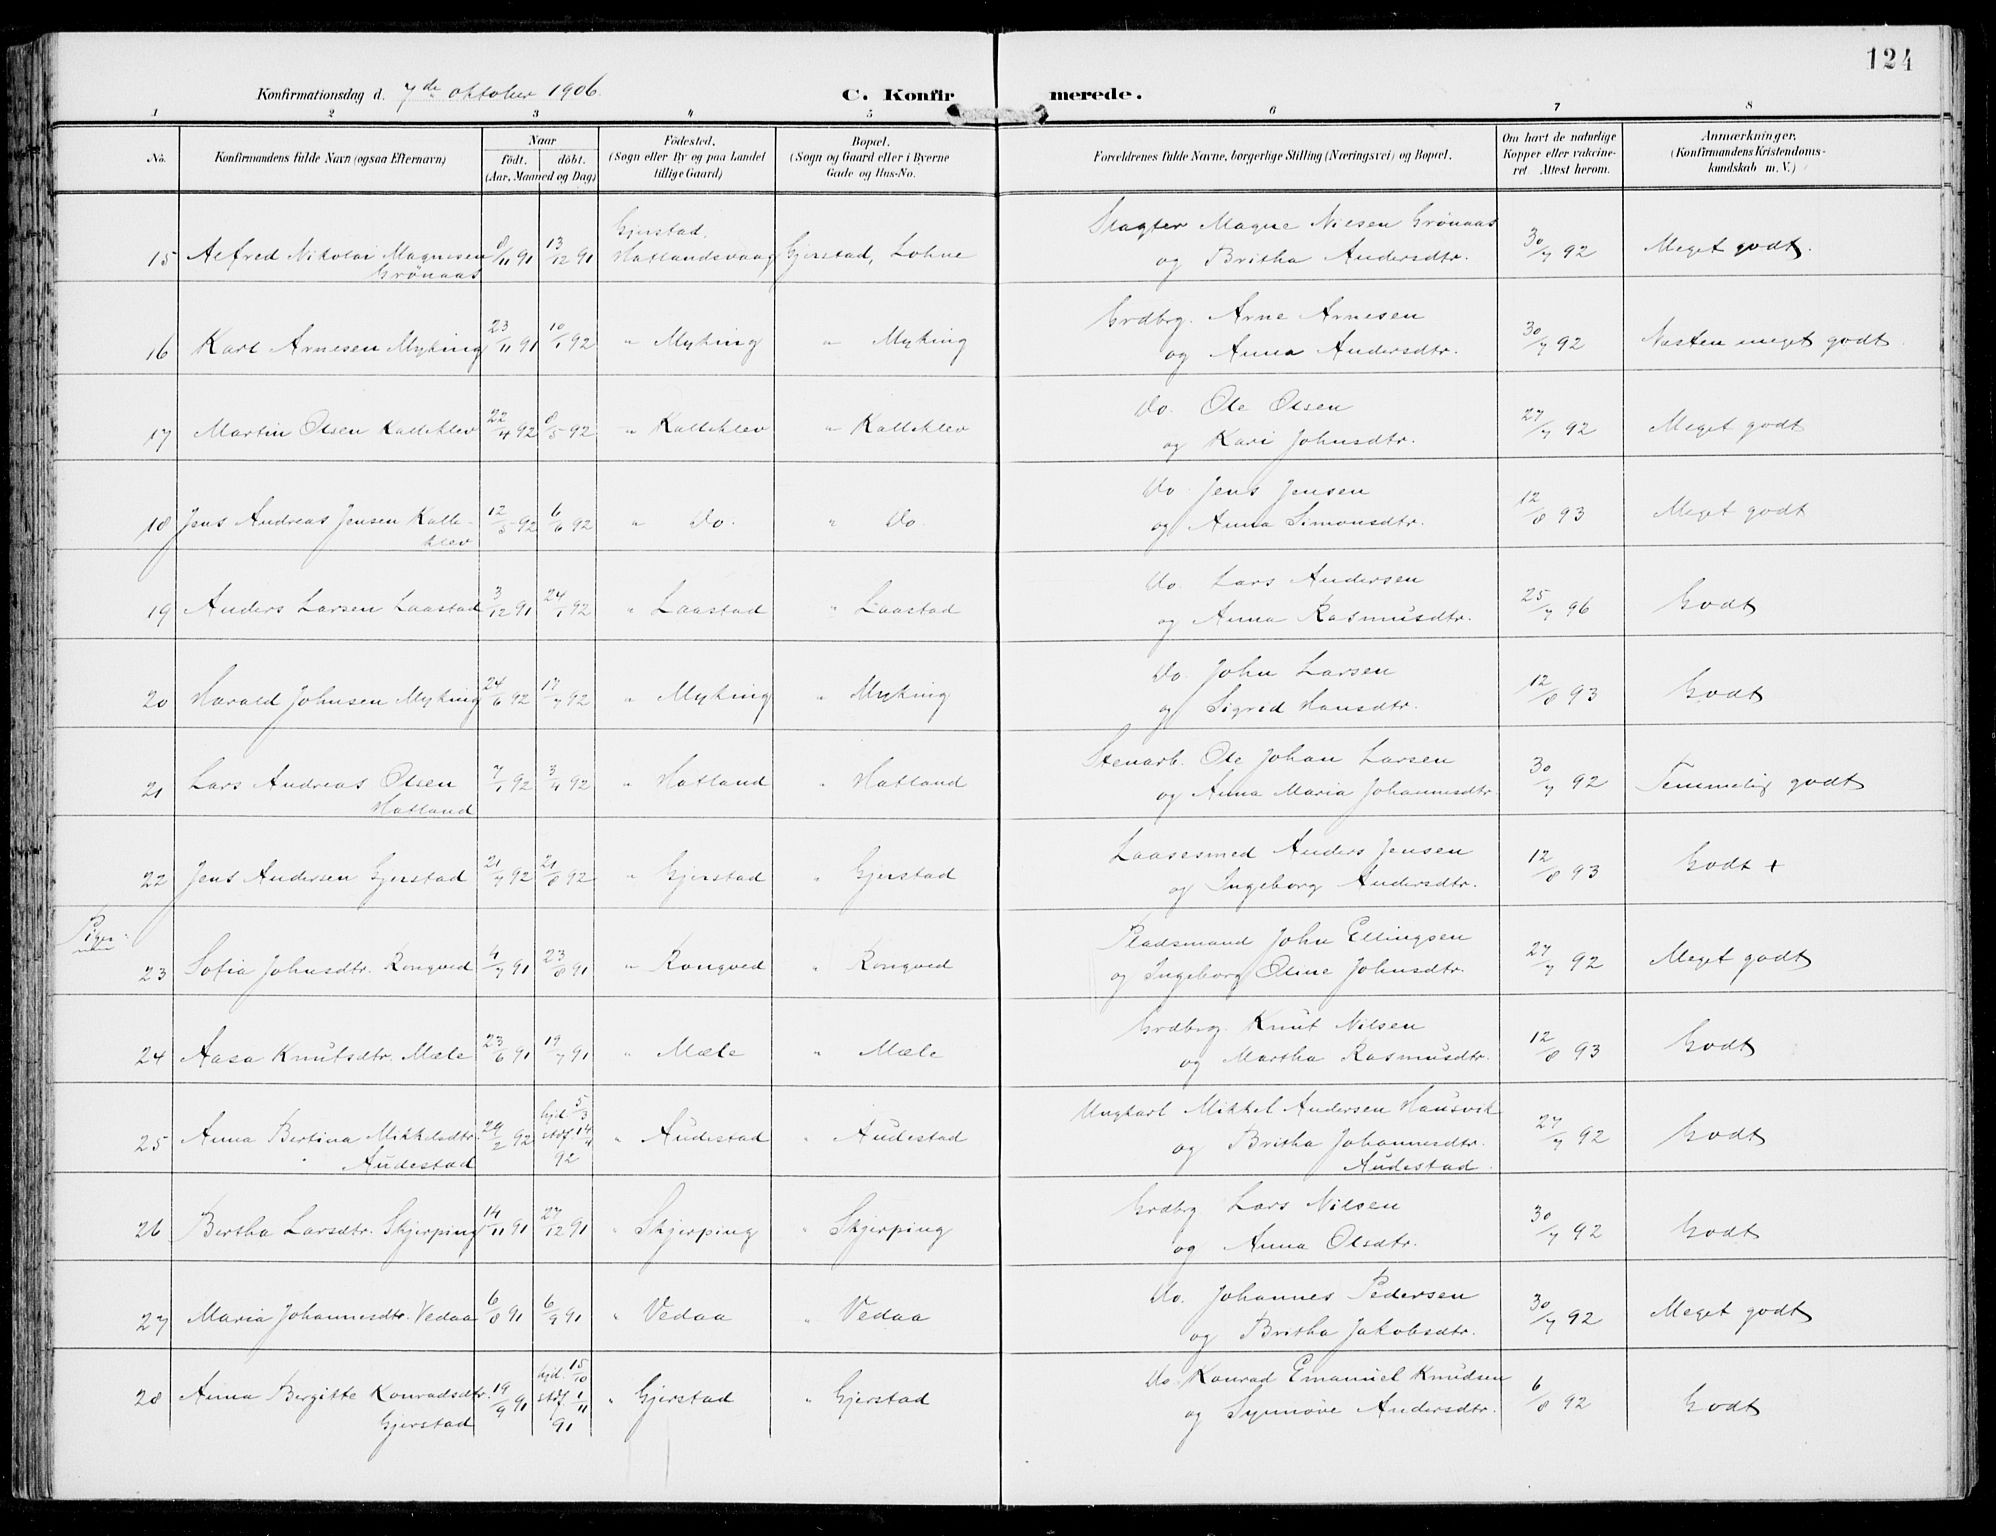 124
Konfirmationsdag d. 7de oktober 1906
C. Konfirmerede.
1 2 3 4 5 6 7 8
No. | Konfirmandens fulde Navn (ogsaa Efternavn) | Naar födt. döbt. (Aar, Maaned og Dag) | Födested. (Sogn eller By og paa Landet tillige Gaard) | Bopæl. (Sogn og Gaard eller i Byerne Gade og Hus-No. | Forældrenes fulde Navne, borgerlige Stilling (Næringsvei) og Bopæl. | Om havt de naturlige Kopper eller vakcineret. Attest herom. | Anmærkninger. (Konfirmandens Kristendomskundskab m. V.)
15 | Alfred Nikolai Magnesen Grönaas | 8/11 91 | 13/12 91 | Gjerstad, Hatlandsvaag | Gjerstad, Lohne | Slagter Magne Nilsen Grönaas og Britha Andersdtr. | 30/7 92 | Meget godt.
16 | Karl Arnesen Myking | 23/11 91 | 10/1 92 | " Myking | " Myking | Grdbrg. Arne Arnesen og Anna Andersdtr. | 30/7 92 | Næsten meget godt.
17 | Martin Olsen Kalleklev | 22/4 92 | 8/5 92 | " Kalleklev | " Kalleklev | Do. Ole Olsen og Kari Johnsdtr. | 27/7 92 | Meget godt
18 | Jens Andreas Jensen Kalleklev | 12/5 92 | 6/6 92 | " Do. | " Do. | Do. Jens Jensen og Anna Simonsdtr. | 12/8 93 | Meget godt
19 | Anders Larsen Laastad | 3/12 91 | 24/1 92 | " Laastad | " Laastad | Do. Lars Andersen og Anna Rasmusdtr. | 25/7 96 | Godt
20 | Harald Johnsen Myking | 24/6 92 | 17/7 92 | " Myking | " Myking | Do. John Larsen og Sigrid Hansdtr. | 12/8 93 | Godt
21 | Lars Andreas Olsen Hatland | 7/1 92 | 3/4 92 | " Hatland | " Hatland | Stenarb. Ole Johan Larsen og Anna Maria Johannesdtr. | 30/7 92 | Temmelig godt
22 | Jens Andersen Gjerstad | 21/7 92 | 21/8 92 | " Gjerstad | " Gjerstad | Laasesmed Anders Jensen og Ingeborg Andersdtr. | 12/8 93 | Godt +
Piger
23 | Sofia Johnsdtr. Rongved | 4/7 91 | 23/8 91 | " Rongved | " Rongved | Pladsmand John Ellingsen og Ingeborg Oline Johnsdtr. | 27/7 92 | Meget godt
24 | Aasa Knutsdtr. Mæle | 23/6 91 | 19/7 91 | " Mæle | " Mæle | Grdbrg. Knut Nilsen og Martha Rasmusdtr. | 12/8 93 | Godt
25 | Anna Bertina Mikkelsdtr. Audestad | 29/2 92 | hjd. 5/3 stdf. 14/4 92 | " Audestad | " Audestad | Ungkarl Mikkel Andersen Hausvik og Britha Johannesdtr. Audestad. | 27/7 92 | Godt
26 | Bertha Larsdtr. Skjerping | 14/11 91 | 27/12 91 | " Skjerping | " Skjerping | Grdbrg Lars Nilsen og Anna Olsdtr. | 30/7 92 | Godt
27 | Maria Johannesdtr. Vedaa | 6/8 91 | 6/9 91 | " Vedaa | " Vedaa | Do. Johannes Pedersen og Britha Jakobsdtr. | 30/7 92 | Meget godt
28 | Anna Bergitte Konradsdtr. Gjerstad | 19/9 91 | hjd. 15/10 stdf. 1/11 91 | " Gjerstad | " Gjerstad | Do. Konrad Emanuel Knudsen og Synnöve Andersdtr. | 6/8 92 | Godt